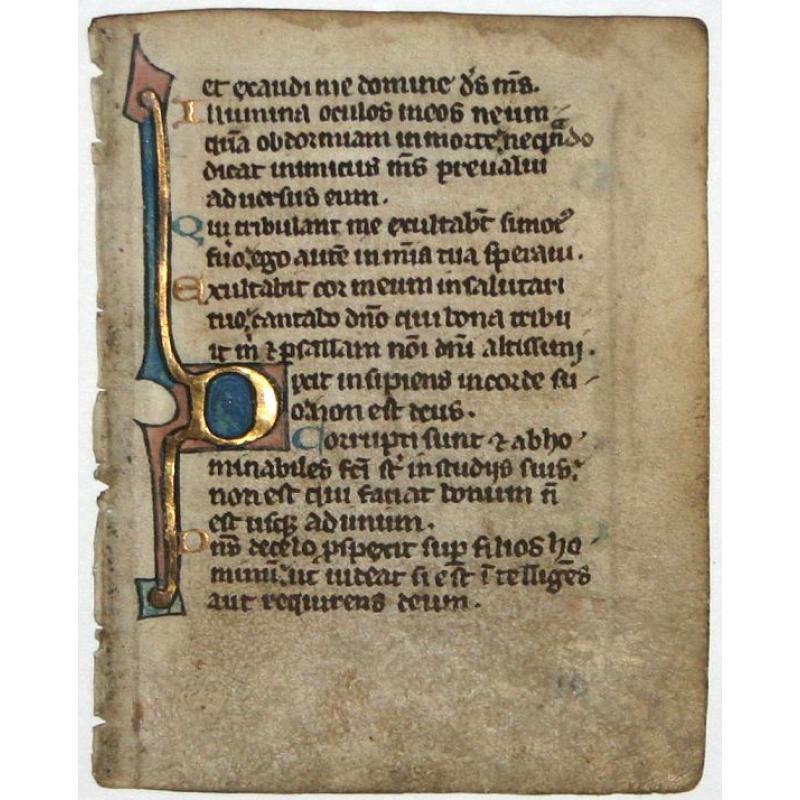 et exaudi me domine ds ms.
Illumina oculos meos ne um
qua obdormiam in morte, neqndo
dicat inimicus ms prevalui
adversus eum.
Qui tribulant me exultabt si mot
fuo, ego aute in mia tua speravi.
Exultabit cor meum in salutari
tuo, cantabo dno qui bona tribu
it m & psallam noi dni altissimi.
Dixit insipiens in corde su
o, non est deus.
Corrupti sunt & abho
minabiles fci st in studijs suis,
non est qui faciat bonum n
est usq ad unum.
Dns de celo pspexit sup filios ho
minu, ut videat si est itelliges
aut requirens deum.